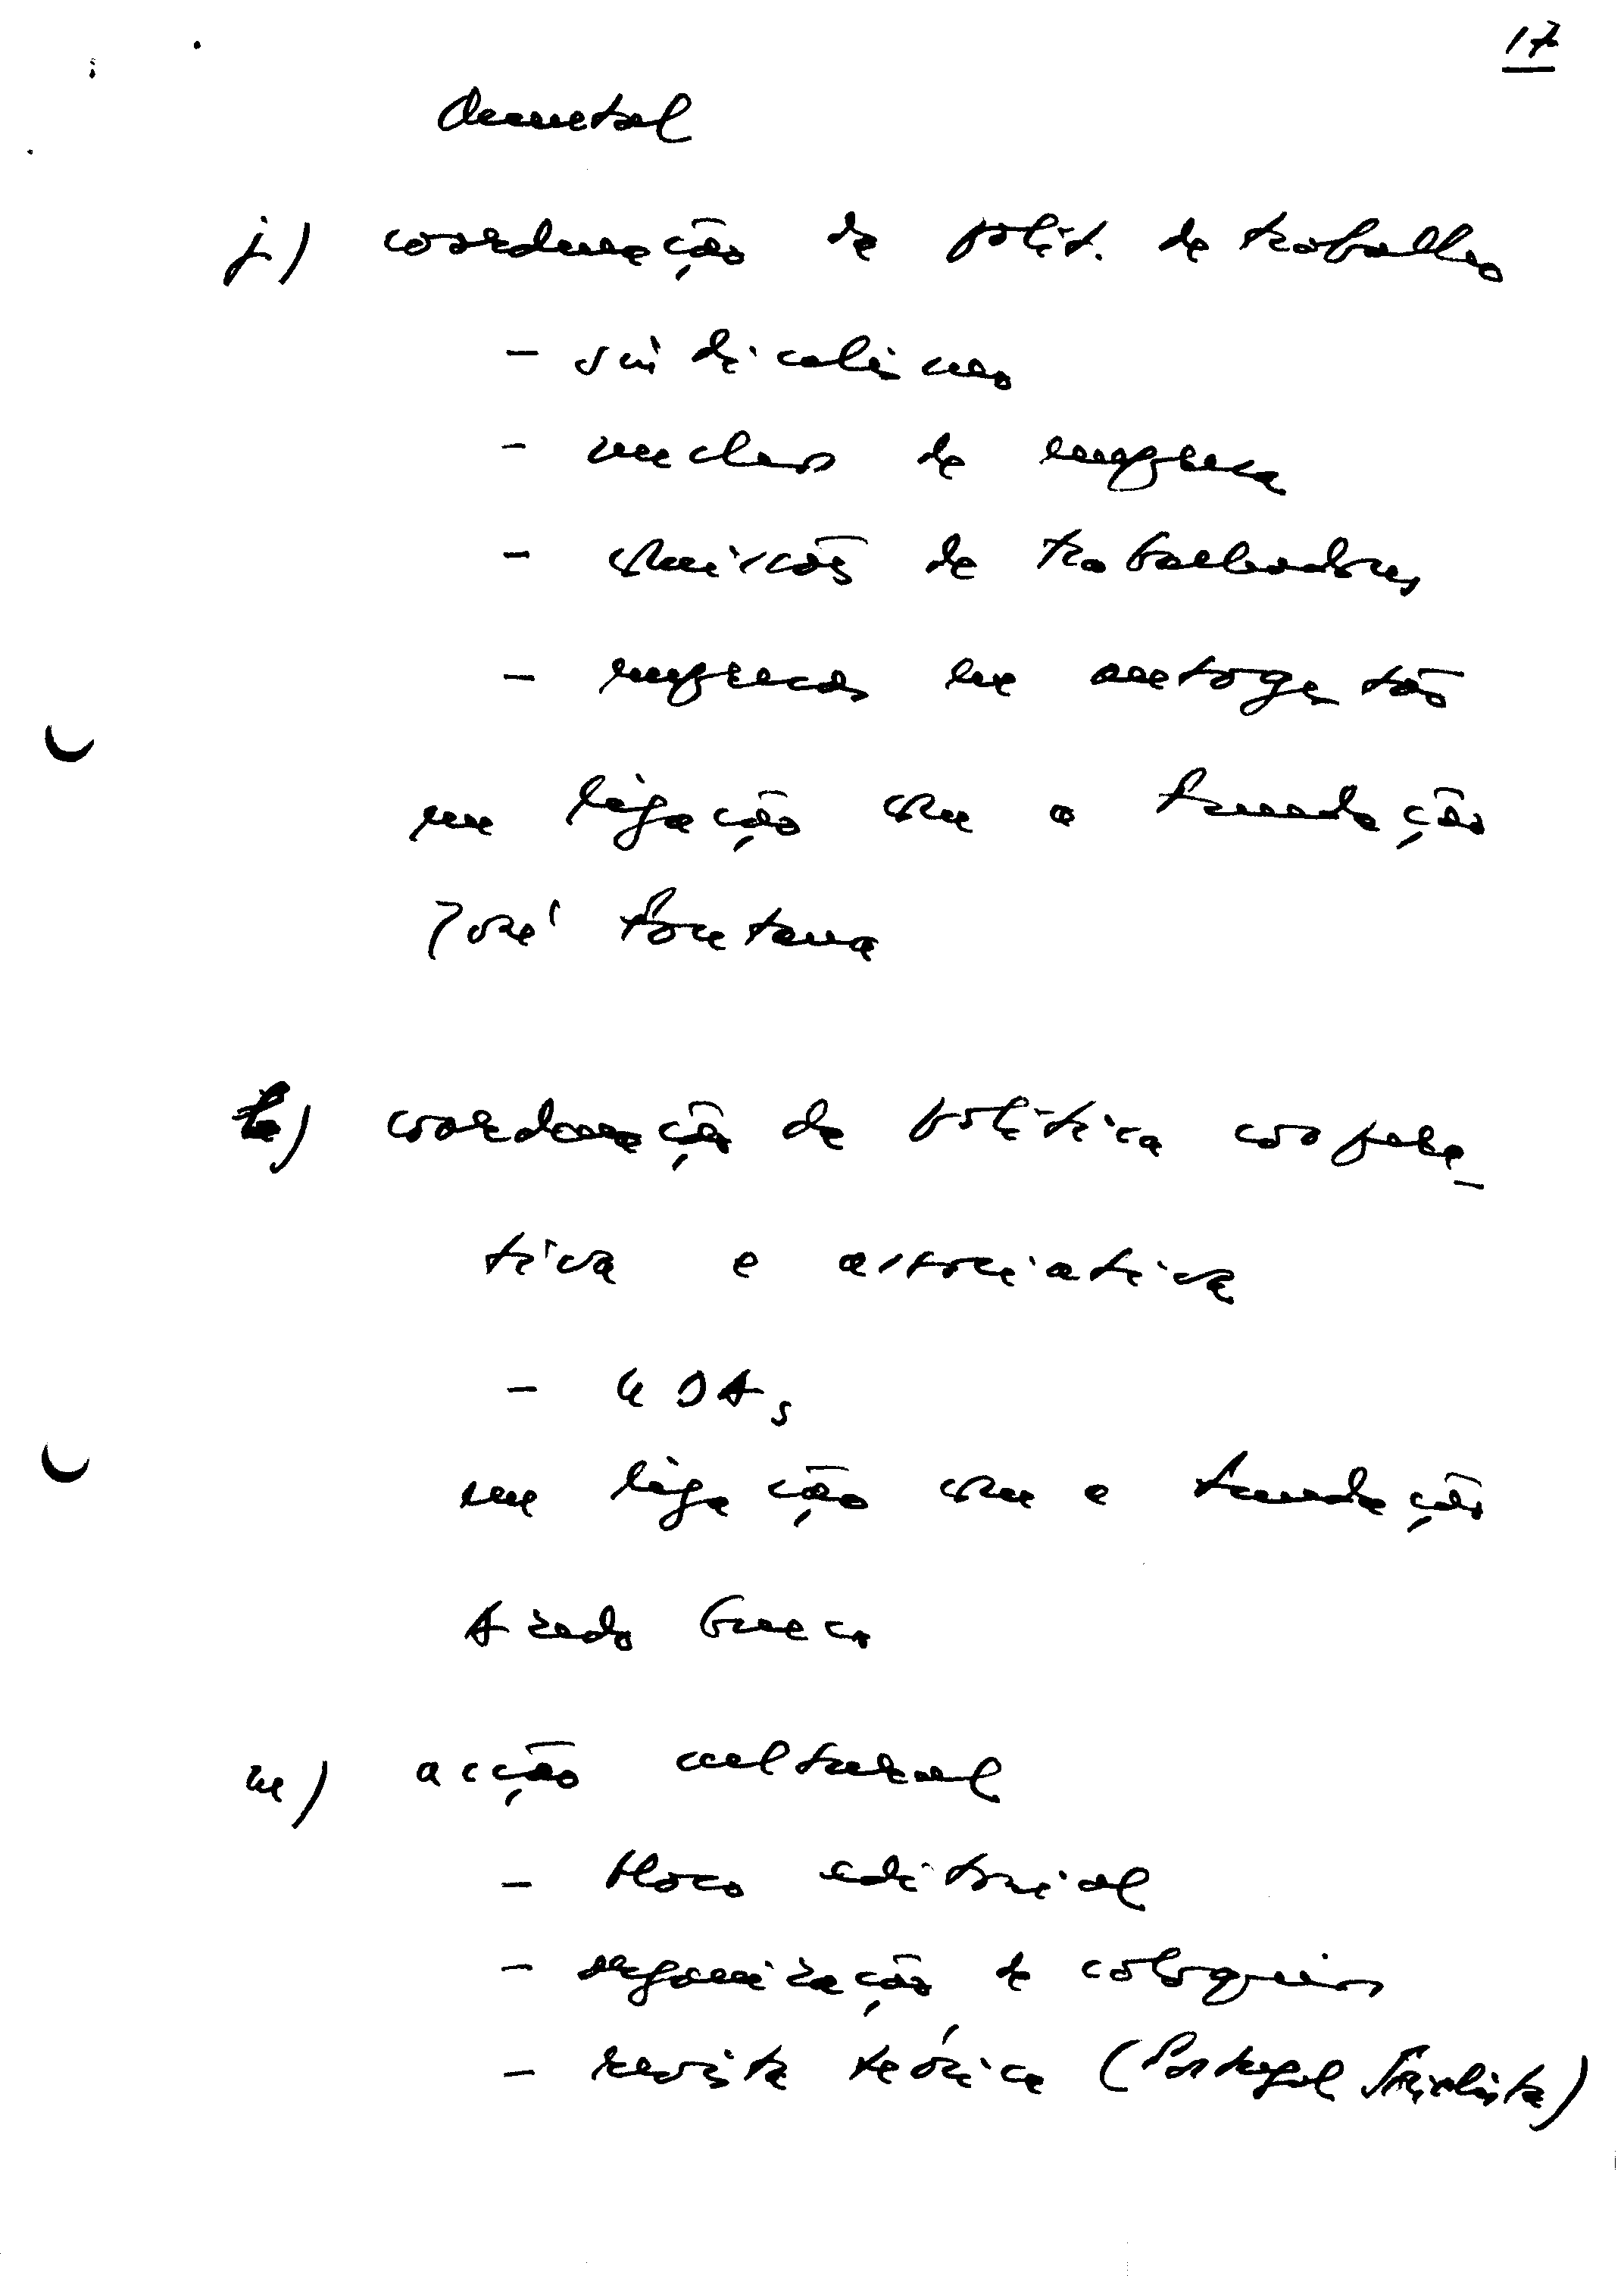 17
j) coordenação de polít. de trabalho
- sindicalismo
- nucleos de empresa
- comissões de trabalhadores
- empresas em autogestão
em ligação com a Fundação
José Fontana
l) coordenação de política coopera-
tiva e associativa
- UDAs
em ligação com a Fundação
Azedo Gneco
m) acção cultural
- bloco editorial
- organização de coloquios
- revista teórica (Portugal Socialista)